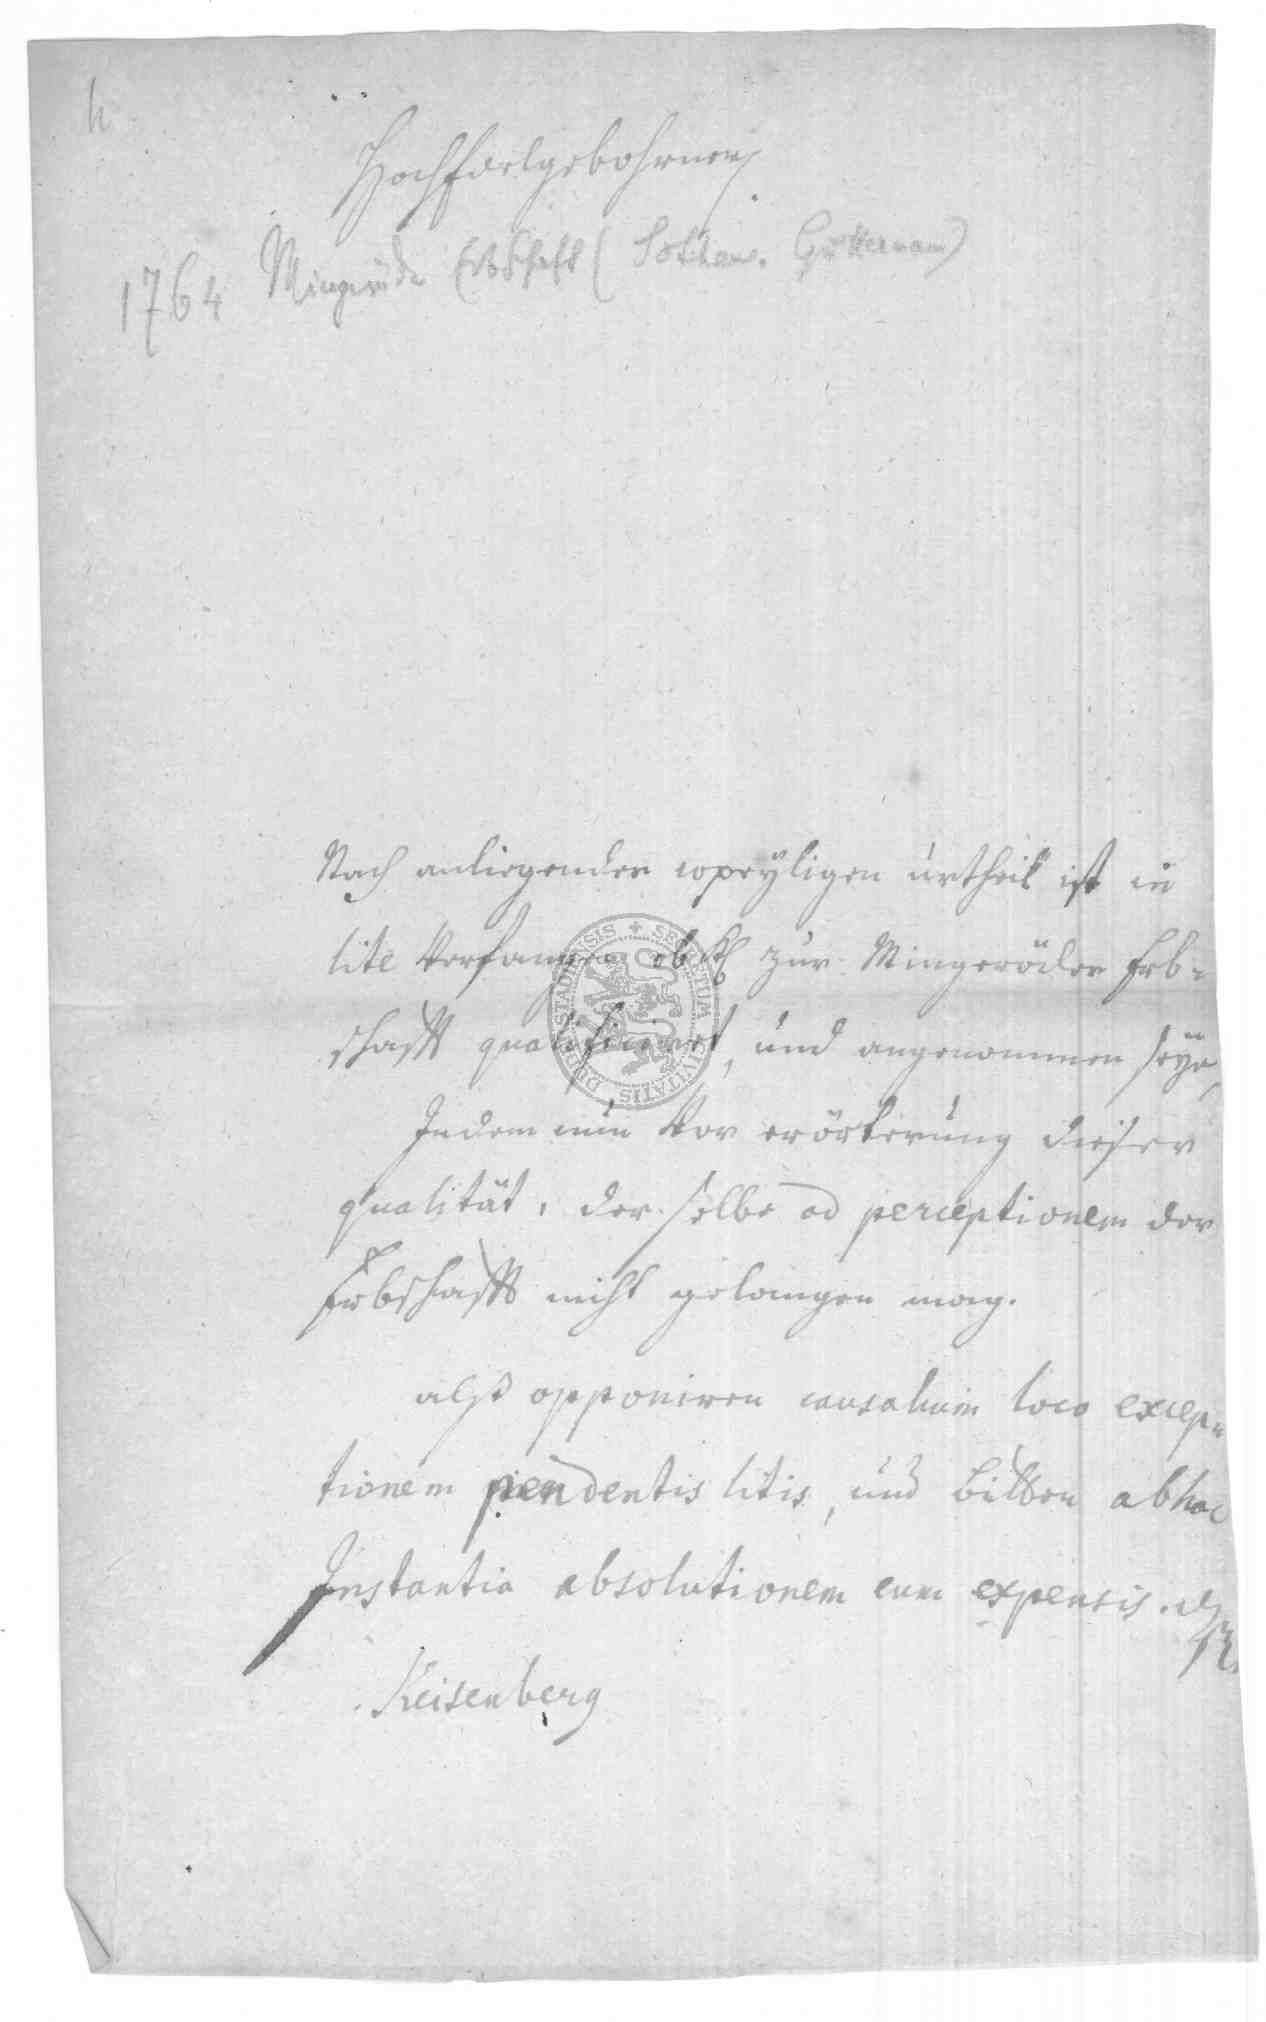 h
Hochfdelgebohrner
1764 Mingeröde Erbschaft (Götterman)
Nach anliegender copeyligen urtheil ist in
lite Verfangen ob zur Mingeröder Erb-
schafft qualificiret, und angenommen seye,
Indem nun Vor erörterung dieser
qualität, derselbe ad perceptionem der
Erbschafft nicht gelangen mag.
alß opponiren causalium loco excep-
tionem pendentis litis, und bitten ab hac
Instantia absolutionem cum expensis.
Keisenberg
SECRETUM CIVITATIS DUDERSTADIENSIS